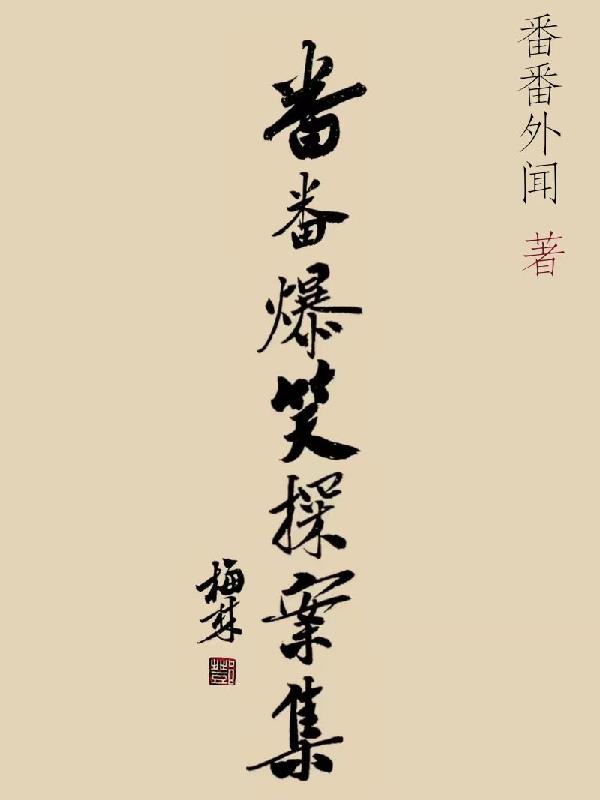 番番外闻 著
番番爆笑探案集
梅林